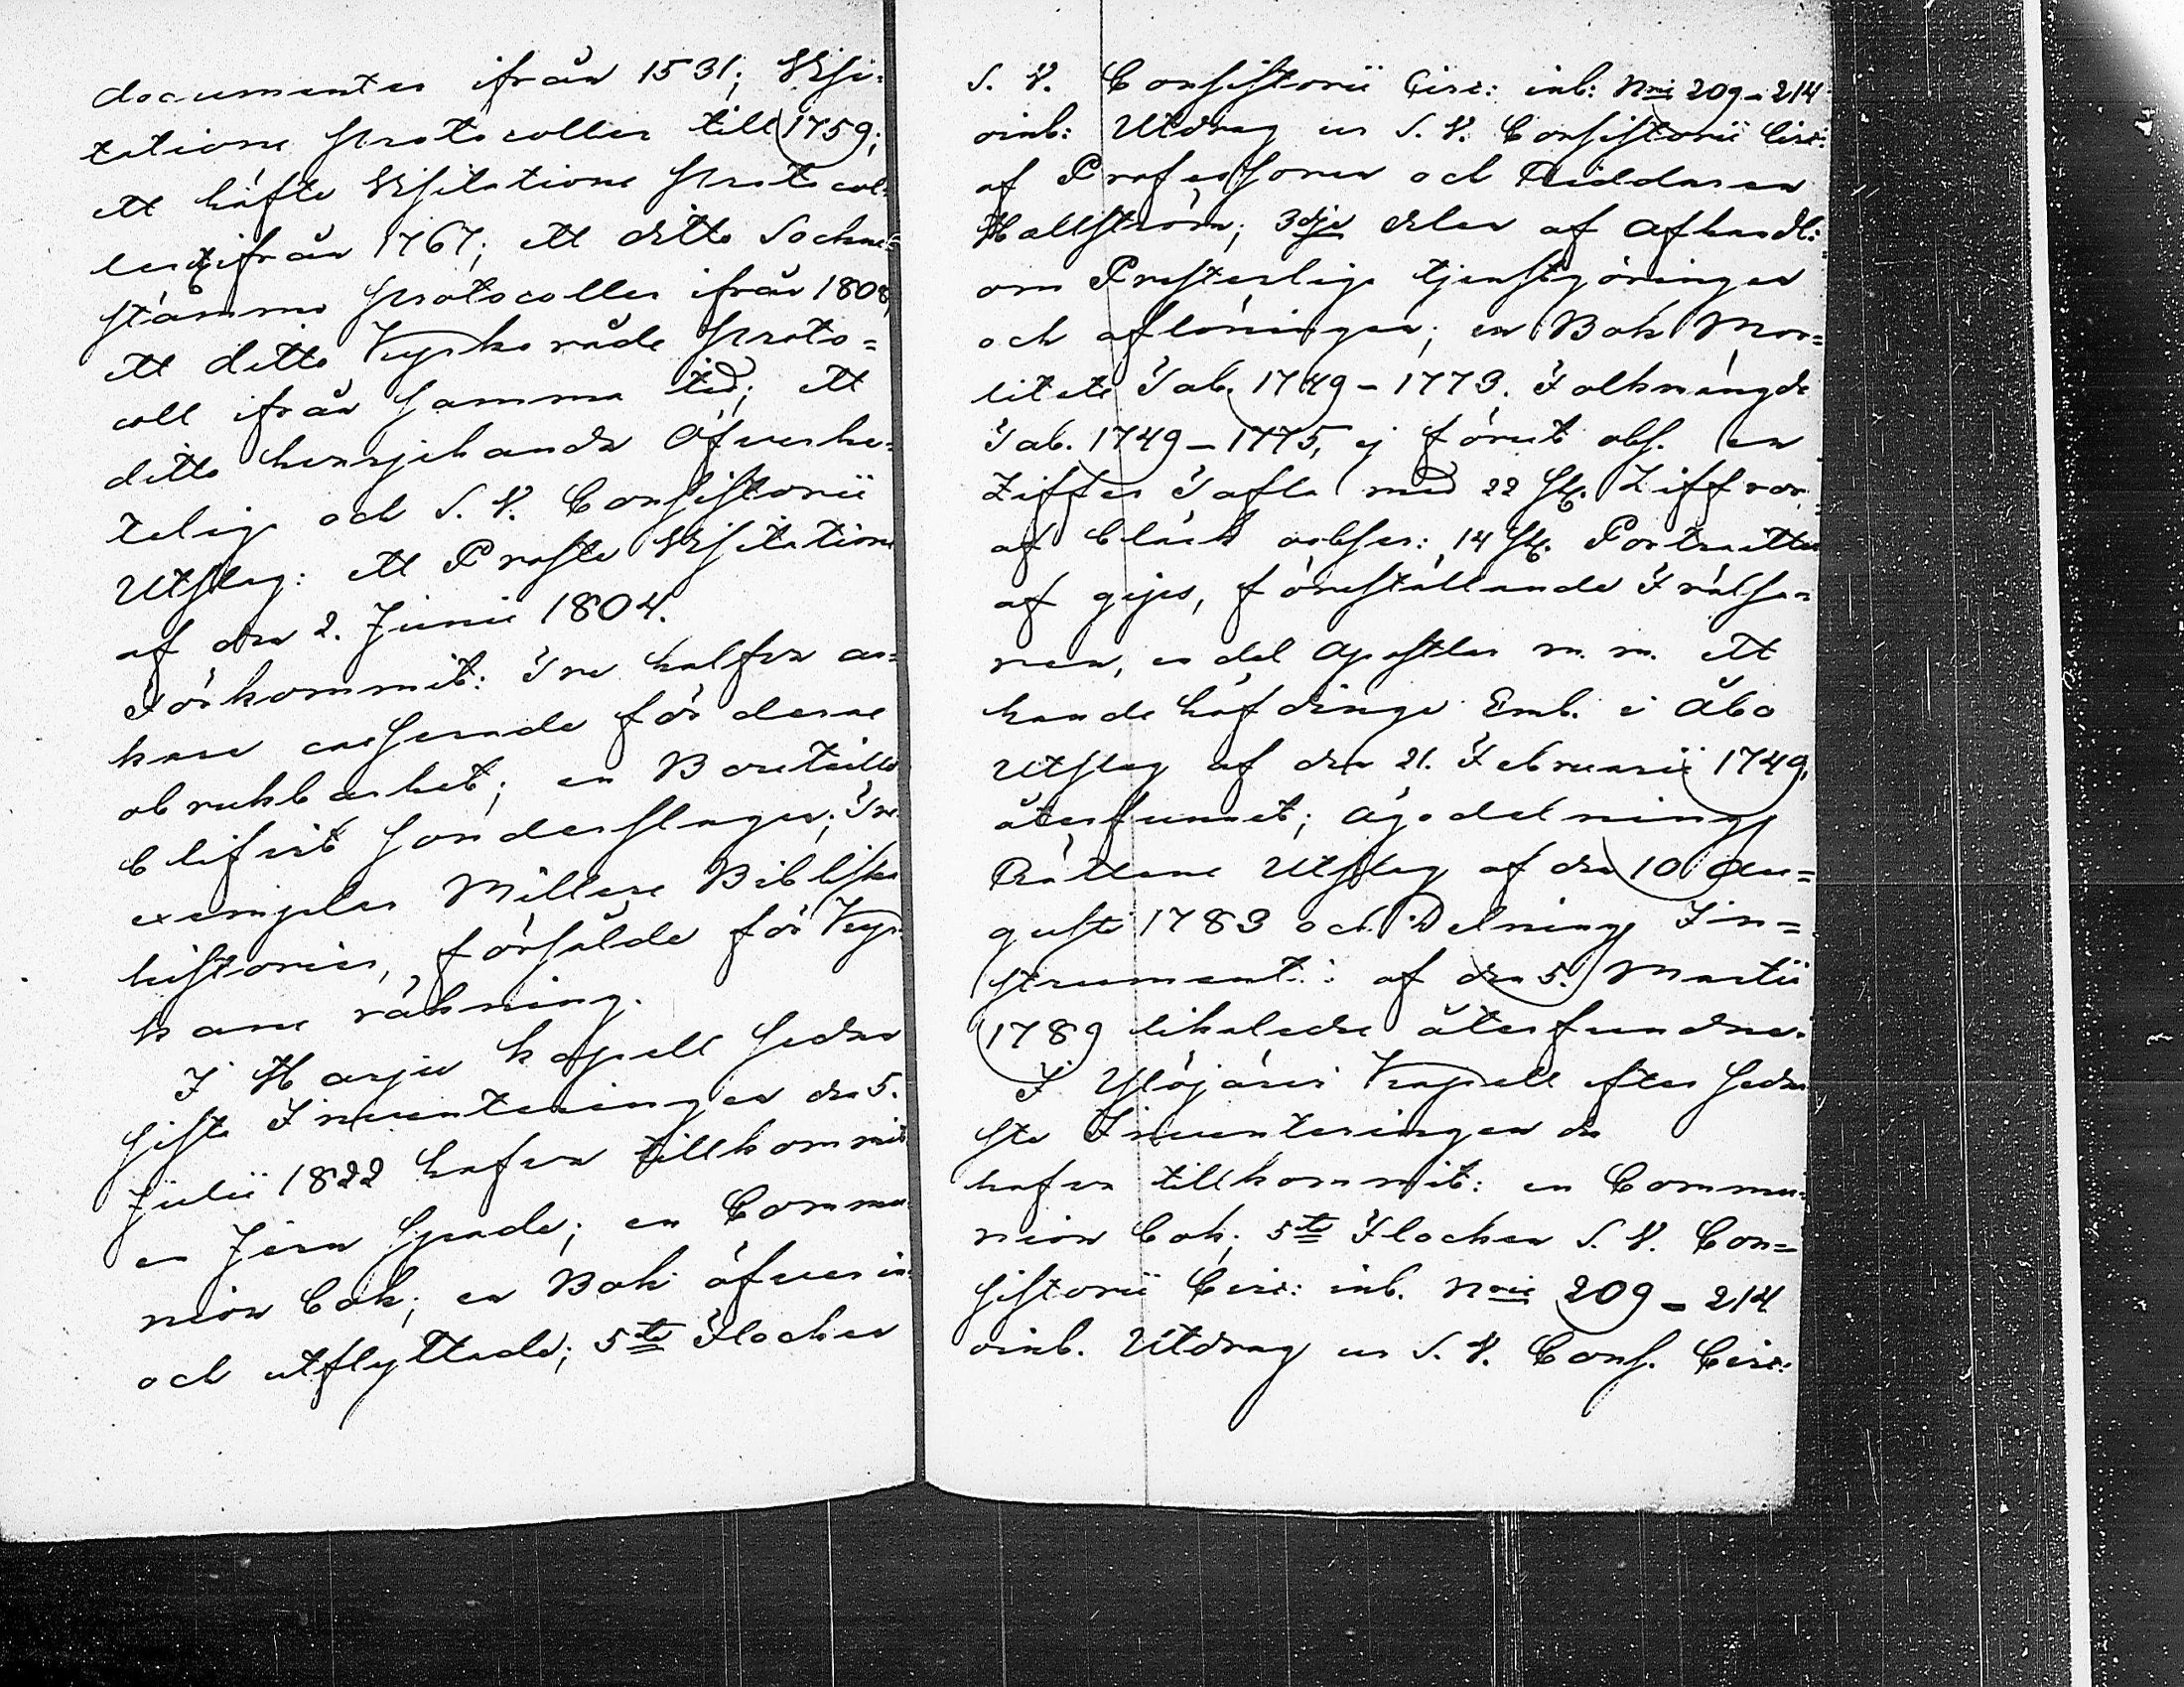 documenter ifrån 1531; Visi-
tations protocoller till 1759;
ett häfte Visitations protocol-
ler ifrån 1767; ett ditto Sockne-
stämmo protocoller ifrån 1808,
ett ditto Kyrko råds proto=
coll ifrån samma tid; ett
ditto Öfverhe-
telige och S. V. Consistorii
Utslag: ett Prosts Visitations
af den 2. Junii 1804.
Förkommit: Tre halfva an=
kare casserade för deras
obrukbarhet; en Bouteille
blifvit sönderslagen; Tre
exemplar Millers Bibliska
historier, försålde för Kyr-
kans räkning.
I Harju kapell sedan
sista Inventeringen den 5.
Julii 1822 hafva tillkommit
en Jern Spade; en Commu-
nion bok; en Bok öfver in-
och utflyttade; 5te Flocken
S. V. Consistorii Circ: inb: Nris 209-214
oinb: Utdrag ur S. V. Consistorii Circ:
af Professoren och Riddaren
Hallström; 3dje delen af Afhandl:
om Presterliga tjenstgöringen
och aflöningen; en Bok Mor=
litets Tab. 1749-1773. Folkmängds
Tab. 1749-1775, ej förut obs. en
Ziffer Tafla med 22 st. Ziffror
af bläck : 14 st. Portraitter
af gips, föreställande Frälsa=
ren, en del Apostlar m. m. ett
Landshöfdinge Emb. i Åbo
Utslag af den 21. Februarii 1749,
återfunnet; Ägodelnings
Rättens Utslag af den 10 Au=
gusti 1783 och Delnings In=
strument: af den 5. Martii
1789 likaledes återfundne.
I Ylöjärvi Kapell efter sedna
ste Inventeringen den
hafva tillkommit: en Commu-
nion bok; 5te Flocken S. V. Con=
sistorii Circ: inb. Nris 209-214
oinb. Utdrag ur S. V. Cons. Circ: